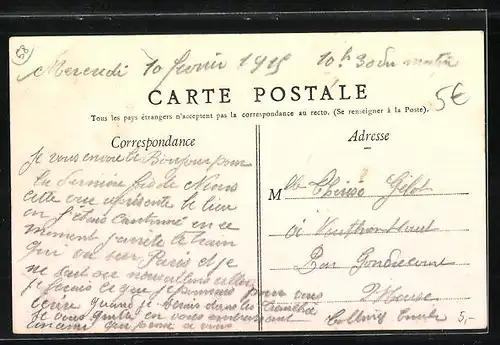 58
Mercredi 10 février 1915 10h 30 du matin
CARTE POSTALE
5€
Tous les pays étrangers n'acceptent pas la correspondance au recto. (Se renseigner à la Poste).
Correspondance
Adresse
Je vous envoie le Bonjour pour
la dernière fois de
cette vue représente le lieu
ou j'étais cantonné en ce
moment le train
qui va sur Paris et je
ne sait ou nous allons aller
je ferais ce que je pourrais pour vous
écrire quand je serais dans les tranchée
je vous quitte en vous embrassant
qui pense a vous
Mlle Thérèse
à Vouthon Haut
Par Gondrecourt
Meuse
5,-